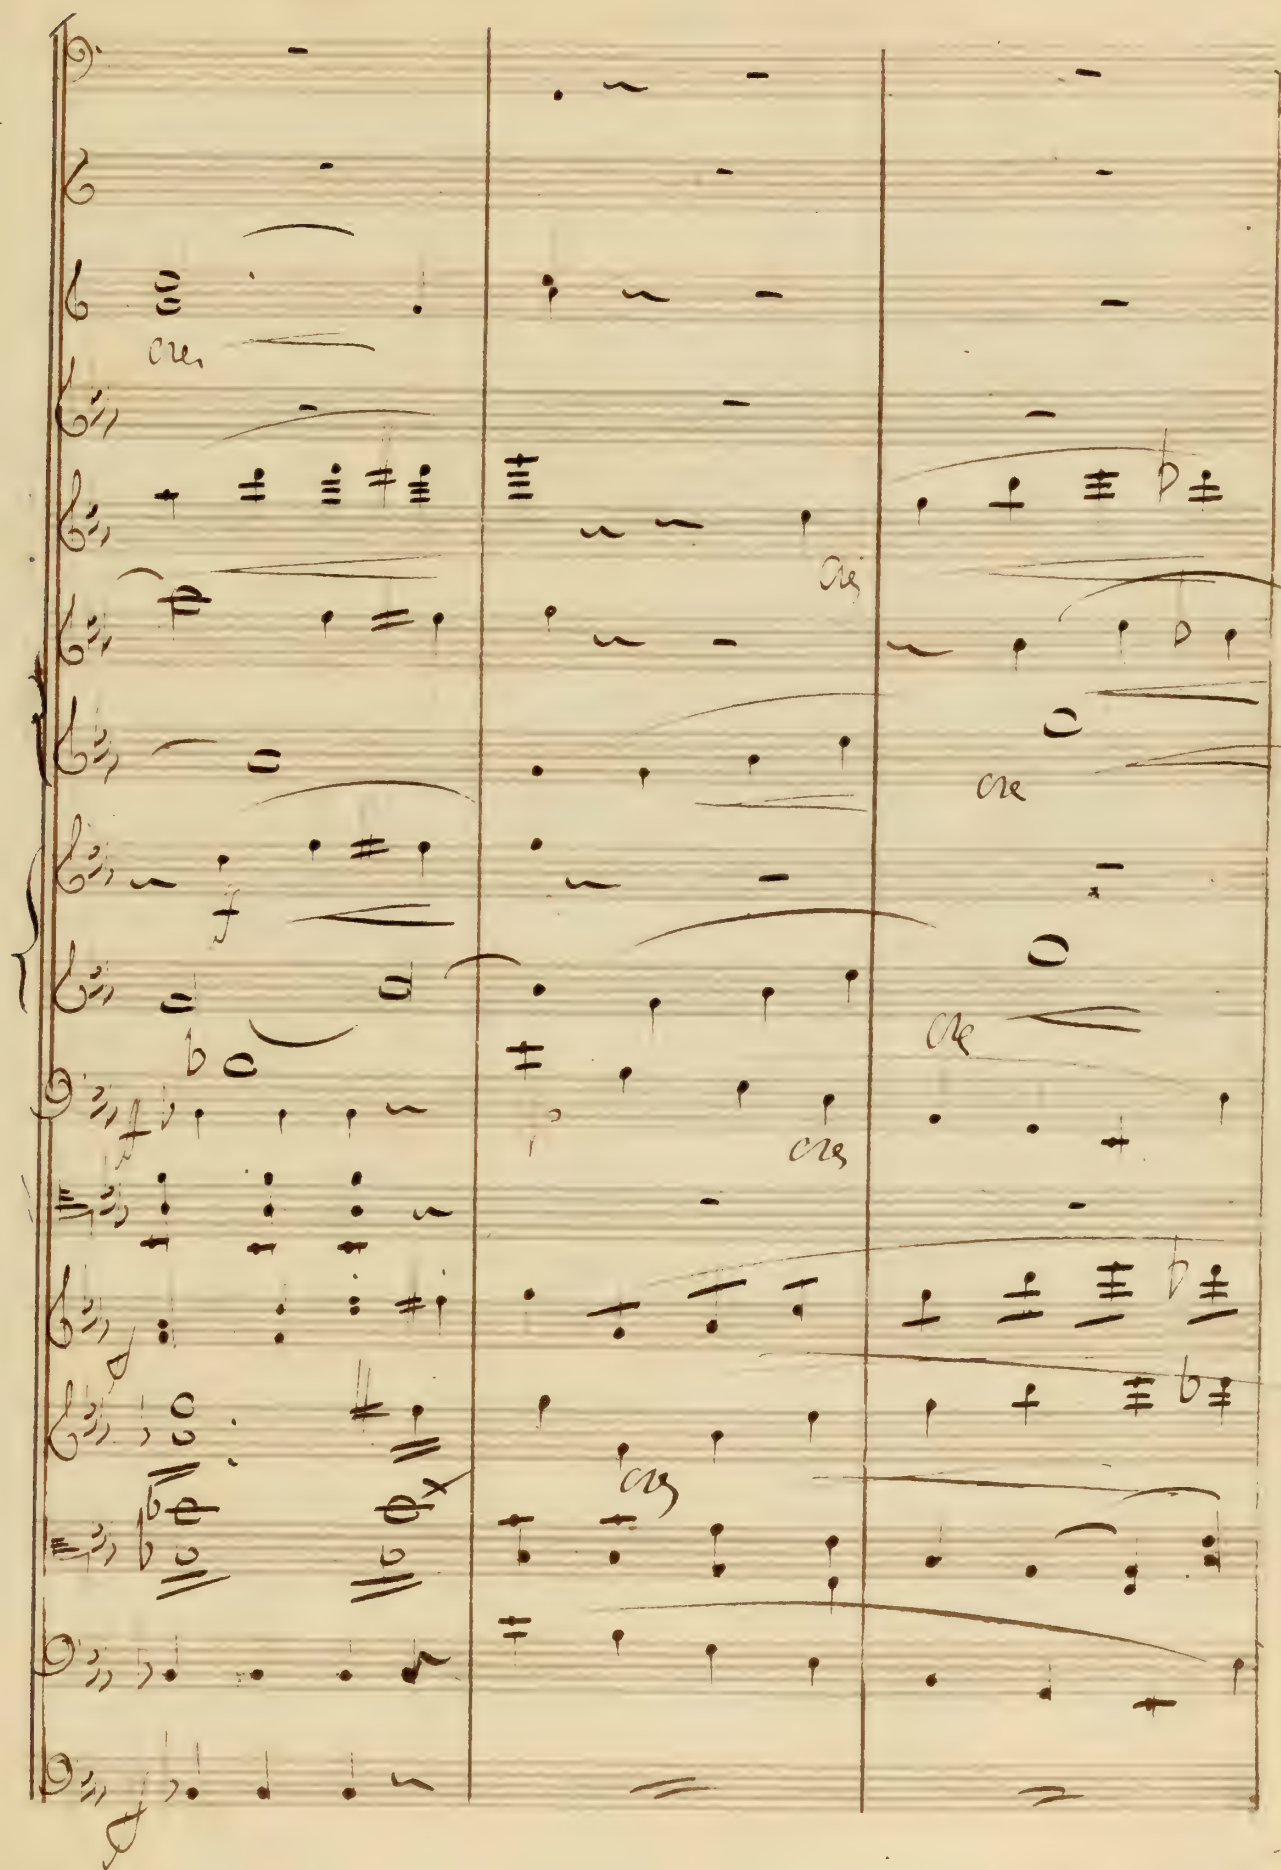 cres
cres
cre
f
cre
f
p
cres
f
cres
f